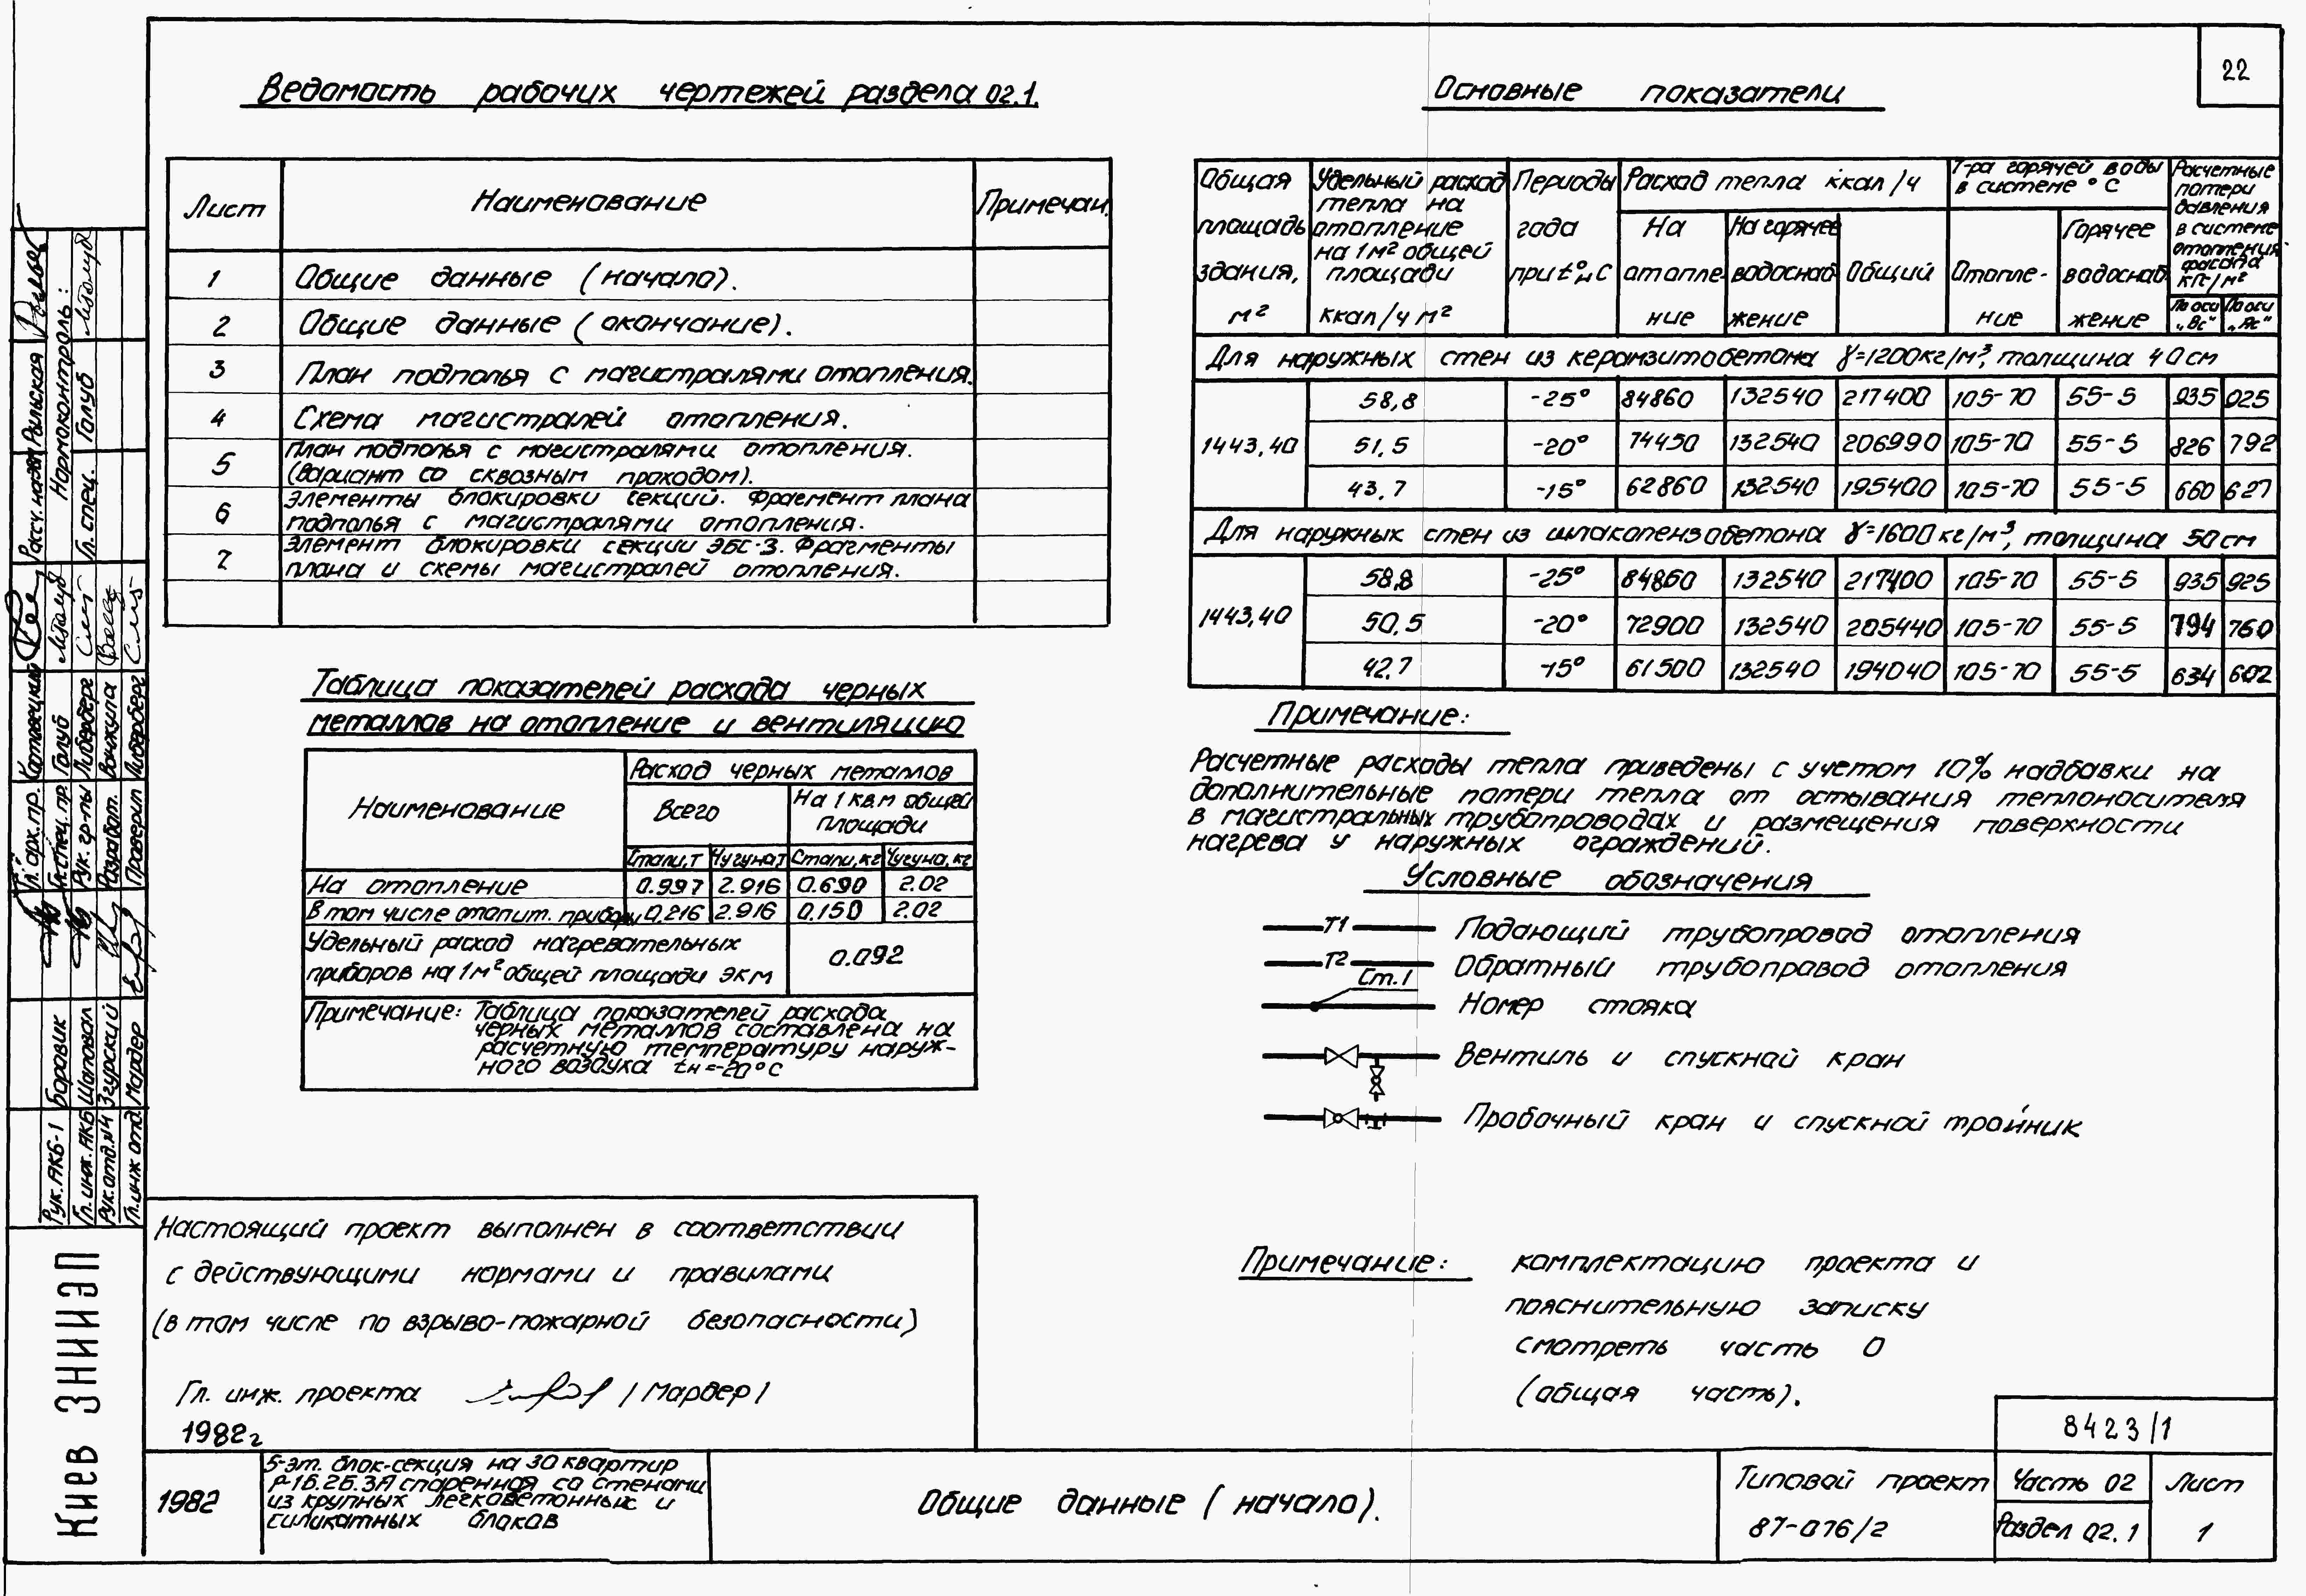 22
Ведомость рабочих чертежей раздела 02.1.
Лист Наименование Примечан.
1 Общие данные (начало).
2 Общие данные (окончание).
3 План подполья с магистралями отопления.
4 Схема магистралей отопления.
5 План подполья с магистралями отопления.
(вариант со сквозным проходом).
6 Элементы блокировки секций. Фрагмент плана
подполья с магистралями отопления.
7 Элемент блокировки секции ЭБС-3. Фрагменты
плана и схемы магистралей отопления.
Таблица показателей расхода черных
металлов на отопление и вентиляцию
Наименование
Расход черных металлов
Всего
На 1 кв.м общей
площади
Стали,т Чугуна,т Стали,кг Чугуна,кг
На отопление 0.997 2.916 0.690 2.02
В том числе отопит. приборы 0.216 2.916 0.150 2.02
Удельный расход нагревательных
приборов на 1м² общей площади экм 0.092
Примечание: Таблица показателей расхода
черных металлов составлена на
расчетную температуру наруж-
ного воздуха tн=-20°С
Настоящий проект выполнен в соответствии
с действующими нормами и правилами
(в том числе по взрыво-пожарной безопасности)
Гл. инж. проекта /Мардер/
1982г
Основные показатели
Общая
площадь
здания,
м²
Удельный расход
тепла на
отопление
на 1м² общей
площади
ккал/ч м²
Периоды
года
при t°н С
Расход тепла ккал/ч
На
отопле-
ние
На горячее
водоснаб-
жение
Общий
Т-ра горячей воды
в системе °С
Отопле-
ние
Горячее
водоснаб-
жение
Расчетные
потери
давления
в системе
отопления
фасада
кгс/м²
По оси
"Вс"
По оси
"Яс"
Для наружных стен из керамзитобетона γ=1200кг/м³, толщина 40см
1443,40
58,8 -25° 84860 132540 217400 105-70 55-5 935 925
51,5 -20° 74450 132540 206990 105-70 55-5 826 792
43,7 -15° 62860 132540 195400 105-70 55-5 660 627
Для наружных стен из шлакопензобетона γ=1600кг/м³, толщина 50см
1443,40
58,8 -25° 84860 132540 217400 105-70 55-5 935 925
50,5 -20° 72900 132540 205440 105-70 55-5 794 760
42,7 -15° 61500 132540 194040 105-70 55-5 634 602
Примечание:
Расчетные расходы тепла приведены с учетом 10% надбавки на
дополнительные потери тепла от остывания теплоносителя
в магистральных трубопроводах и размещения поверхности
нагрева у наружных ограждений.
Условные обозначения
Т1 Подающий трубопровод отопления
Т2 Обратный трубопровод отопления
Ст.1 Номер стояка
Вентиль и спускной кран
Пробочный кран и спускной тройник
Примечание: комплектацию проекта и
пояснительную записку
смотреть часть 0
(общая часть).
8423/1
1982
5-эт. блок-секция на 30 квартир
Р-1Б.2Б.3Я спаренная со стенами
из крупных легкобетонных и
силикатных блоков
Общие данные (начало).
Типовой проект
87-076/2
Часть 02
Раздел 02.1
Лист
1
Киев ЗНИИЭП
Рук. АКБ-1 Боровик
Гл. инж. АКБ Шаповал
Рук. отд. №4 Згурский
Гл. инж отд. Мардер
Гл. арх. пр. Котовецкий
Гл. спец. пр. Голуб
Рук. гр-пы Либерберг
Разработ. Ванжула
Проверил Либерберг
Рильская
Нормоконтроль:
Гл. спец. Голуб